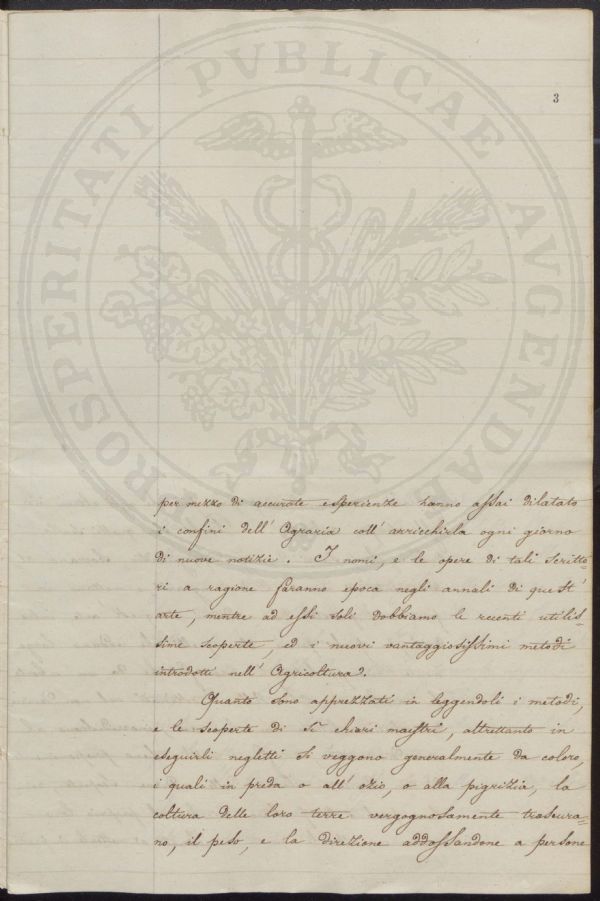 PROSPERITATI PVBLICAE AVGENDAE
3
per mezzo di accurate esperienze hanno assai dilatato
i confini dell' Agraria coll' arricchirla ogni giorno
di nuove notizie. I nomi, e le opere di tali scritto=
ri a ragione faranno epoca negli annali di quest'
arte, mentre ad essi soli dobbiamo le recenti utilis=
sime scoperte, ed i nuovi vantaggiosissimi metodi
introdotti nell' Agricoltura.
Quanto sono apprezzati in leggendoli i metodi,
e le scoperte di sì chiari maestri, altrettanto in
eseguirli negletti si veggono generalmente da coloro,
i quali in preda o all' ozio, o alla pigrizia, la
coltura delle loro terre vergognosamente trascura=
no, il peso, e la direzione addossandone a persone